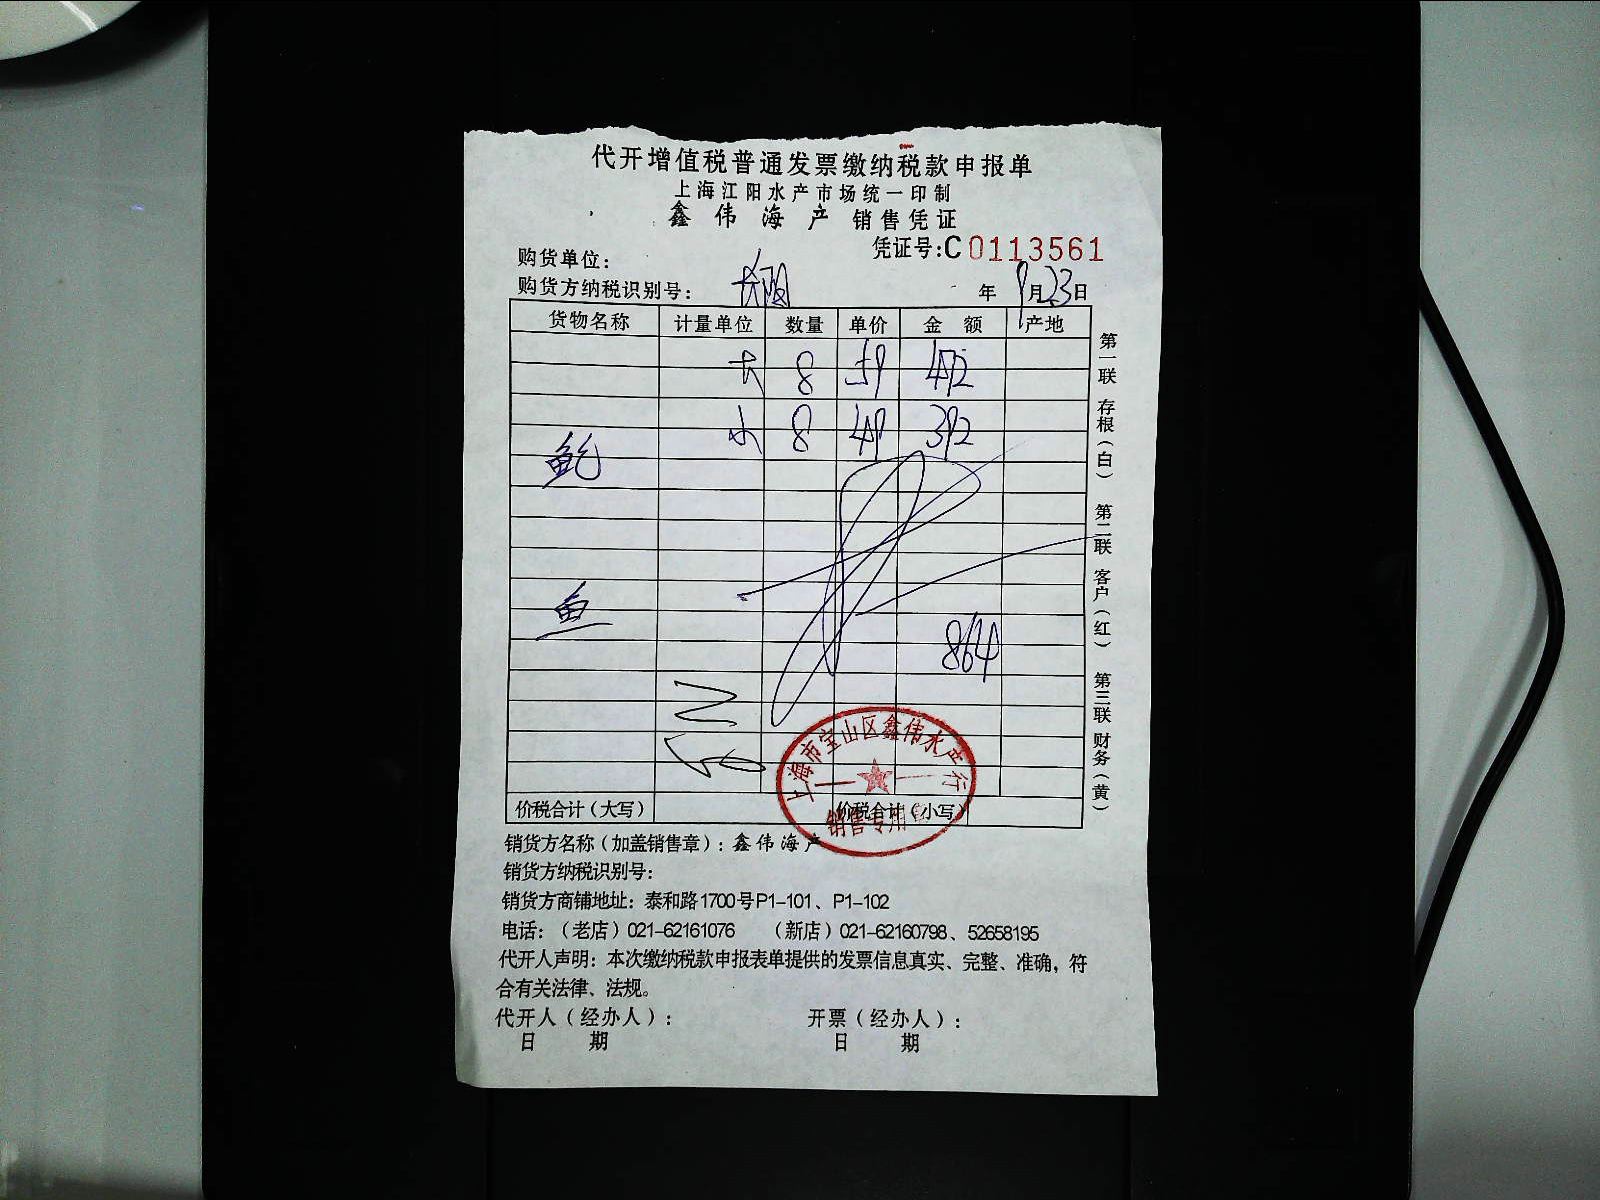 代开增值税普通发票缴纳税款申报单
上海江阳水产市场统一印制
鑫伟海产 销售凭证
凭证号:C0113561
购货单位:
购货方纳税识别号:
年 9月23日
货物名称 计量单位 数量 单价 金额 产地
大 8 59 472
小 8 49 392
鲍
鱼
864
价税合计(大写) 价税合计(小写)
上海市宝山区鑫伟水产行
销售专用章
第一联 存根(白) 第二联 客户(红) 第三联 财务(黄)
销货方名称(加盖销售章):鑫伟海产
销货方纳税识别号:
销货方商铺地址:泰和路1700号P1-101、P1-102
电话:(老店)021-62161076 (新店)021-62160798、52658195
代开人声明:本次缴纳税款申报表单提供的发票信息真实、完整、准确,符
合有关法律、法规。
代开人(经办人): 开票(经办人):
日 期 日 期